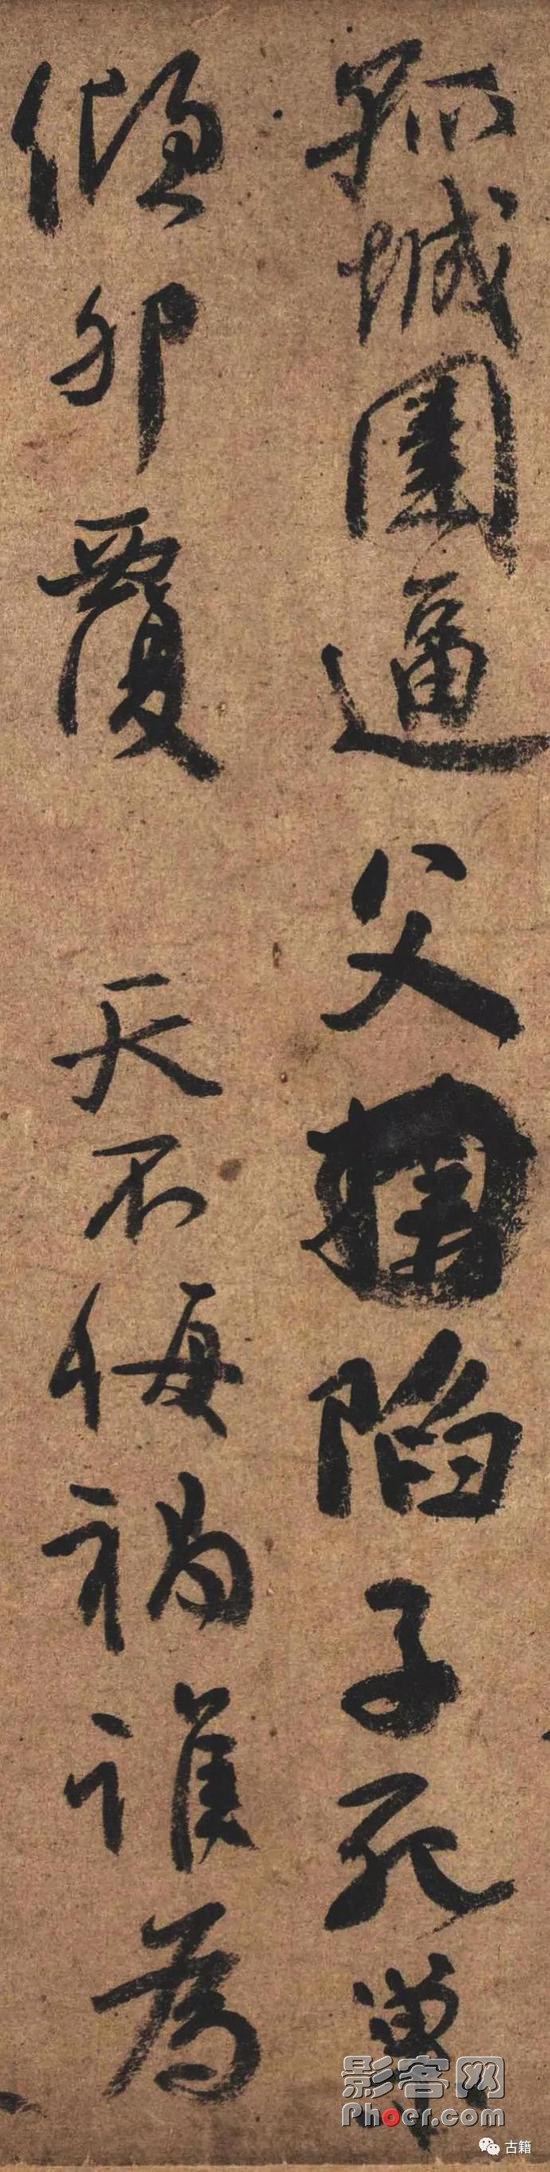 孤城圍逼父陷子死巢
傾卵覆 天不悔禍誰為
影客网
Phoer.com
古籍